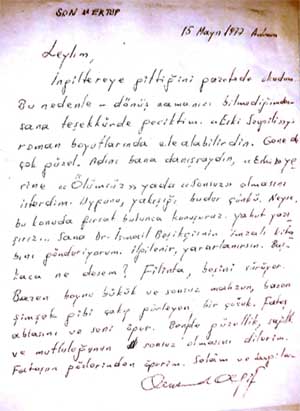 SON MEKTUP
15 Mayıs 1977 Ankara
Leylim,
İngiltereye gittiğini gazetede okudum.
Bu nedenle - dönüş zamanını bilmediğimden
sana teşekkürde geciktim. "Eski Sevgili"yi
roman boyutlarında ele alabilirdin. Gene de
çok güzel. Adını bana danışsaydın, ye
rine "Ölümsüz" yada "Sonsuz" olmasını
isterdim. Uygunu, yakışığı budur çünkü. Neyse,
bu konuda fırsat bulunca konuşuruz. yahut yazı
şırız... Sana Dr. İsmail Beşikçi'nin imzalı kita
bını gönderiyorum. ilgilenir, yararlanırsın. Baş
kaca ne desem? Filinta, beşini sürüyor.
Bazen boynu bükük ve sonsuz mahzun, bazen
şimşek gibi çakıp parlayan bir çocuk. Fatoş
ablasını ve seni öper. Bende güzellik, sağlık
ve mutluluğunun sonsuz olmasını dilerim.
Fatoşun gözlerinden öperim. Selâm ve saygılar